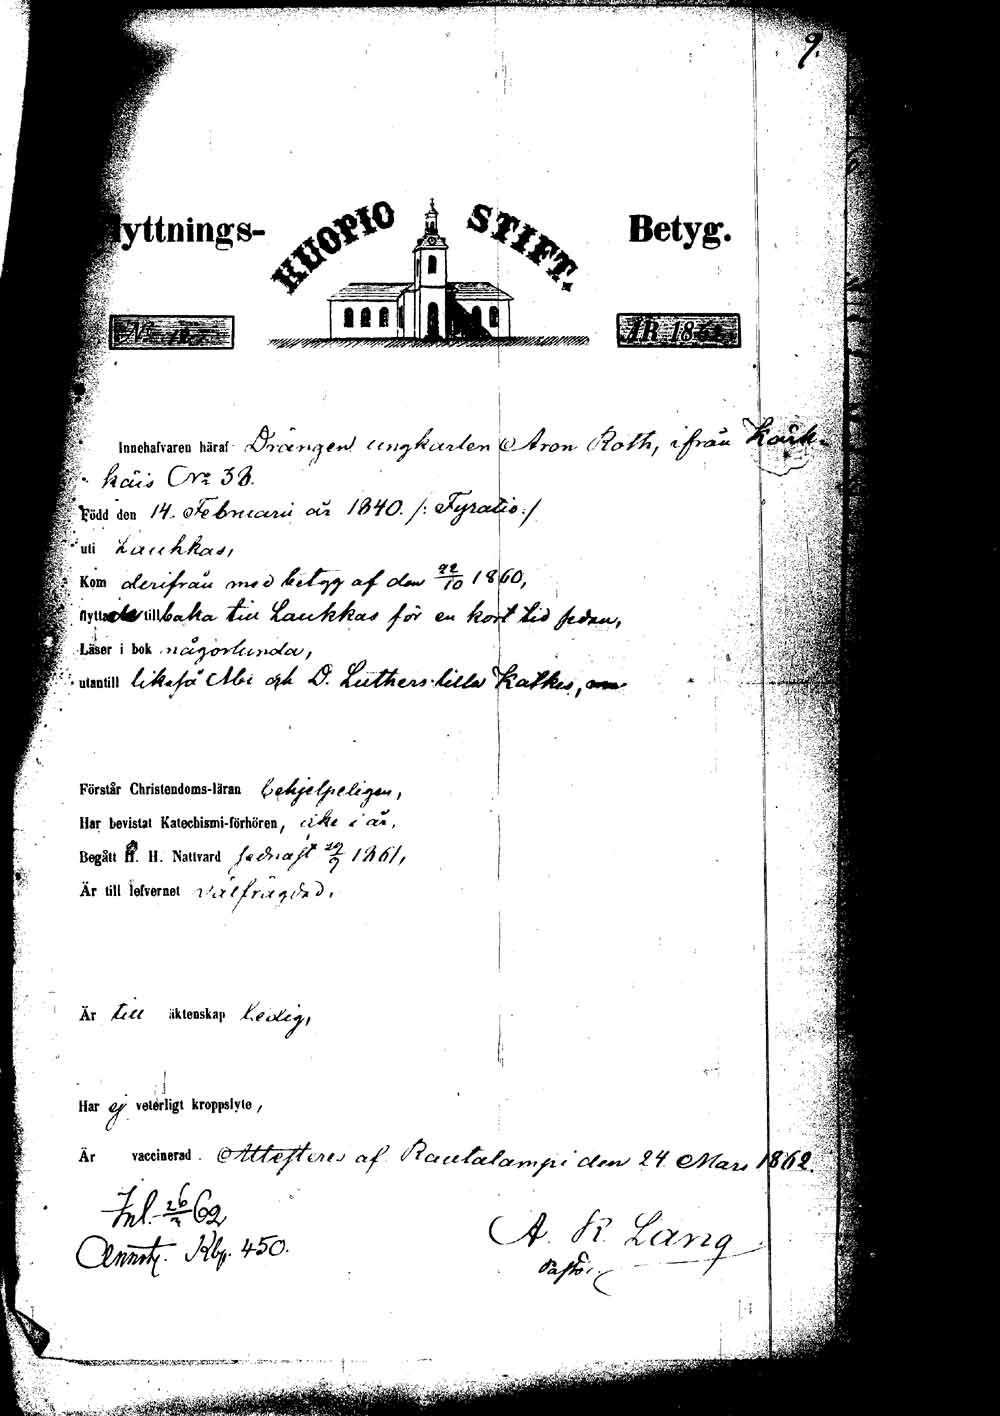 9.
lyttnings- KUOPIO STIFT. Betyg.
No ÅR 1862
Innehafvaren häraf Drängen ungkarlen Aron Roth, ifrån Kärk-
käis No 3B.
Född den 14. Februarii år 1840. /: Fyratio :/
uti Laukkas,
Kom derifrån med betyg af den 22/10 1860,
flyttade tillbaka till Laukkas för en kort tid sedan,
Läser i bok någorlunda,
utantill likaså Abc och D. Luthers lilla Katkes,
Förstår Christendoms-läran behjelpeligen,
Har bevistat Katechismi-förhören, icke i år,
Begått H. H. Nattvard sednast 29/9 1861,
Är till lefvernet välfrägdad,
Är till äktenskap ledig,
Har ej veterligt kroppslyte,
Är vaccinerad. Attesteres af Rautalampi den 24 Mars 1862.
Inl. 26/3 62
Annot. Kbp. 450.
A. K. Lang
Pastor.